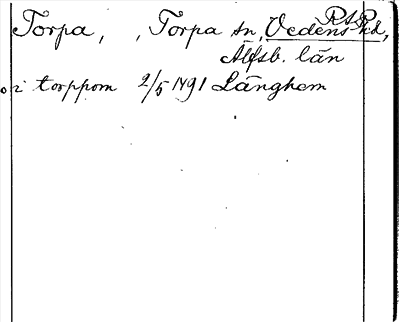 RAP
Torpa, , Torpa sn, Vedens hd,
Älfsb. län
i torppom 2/5 1491 Länghem